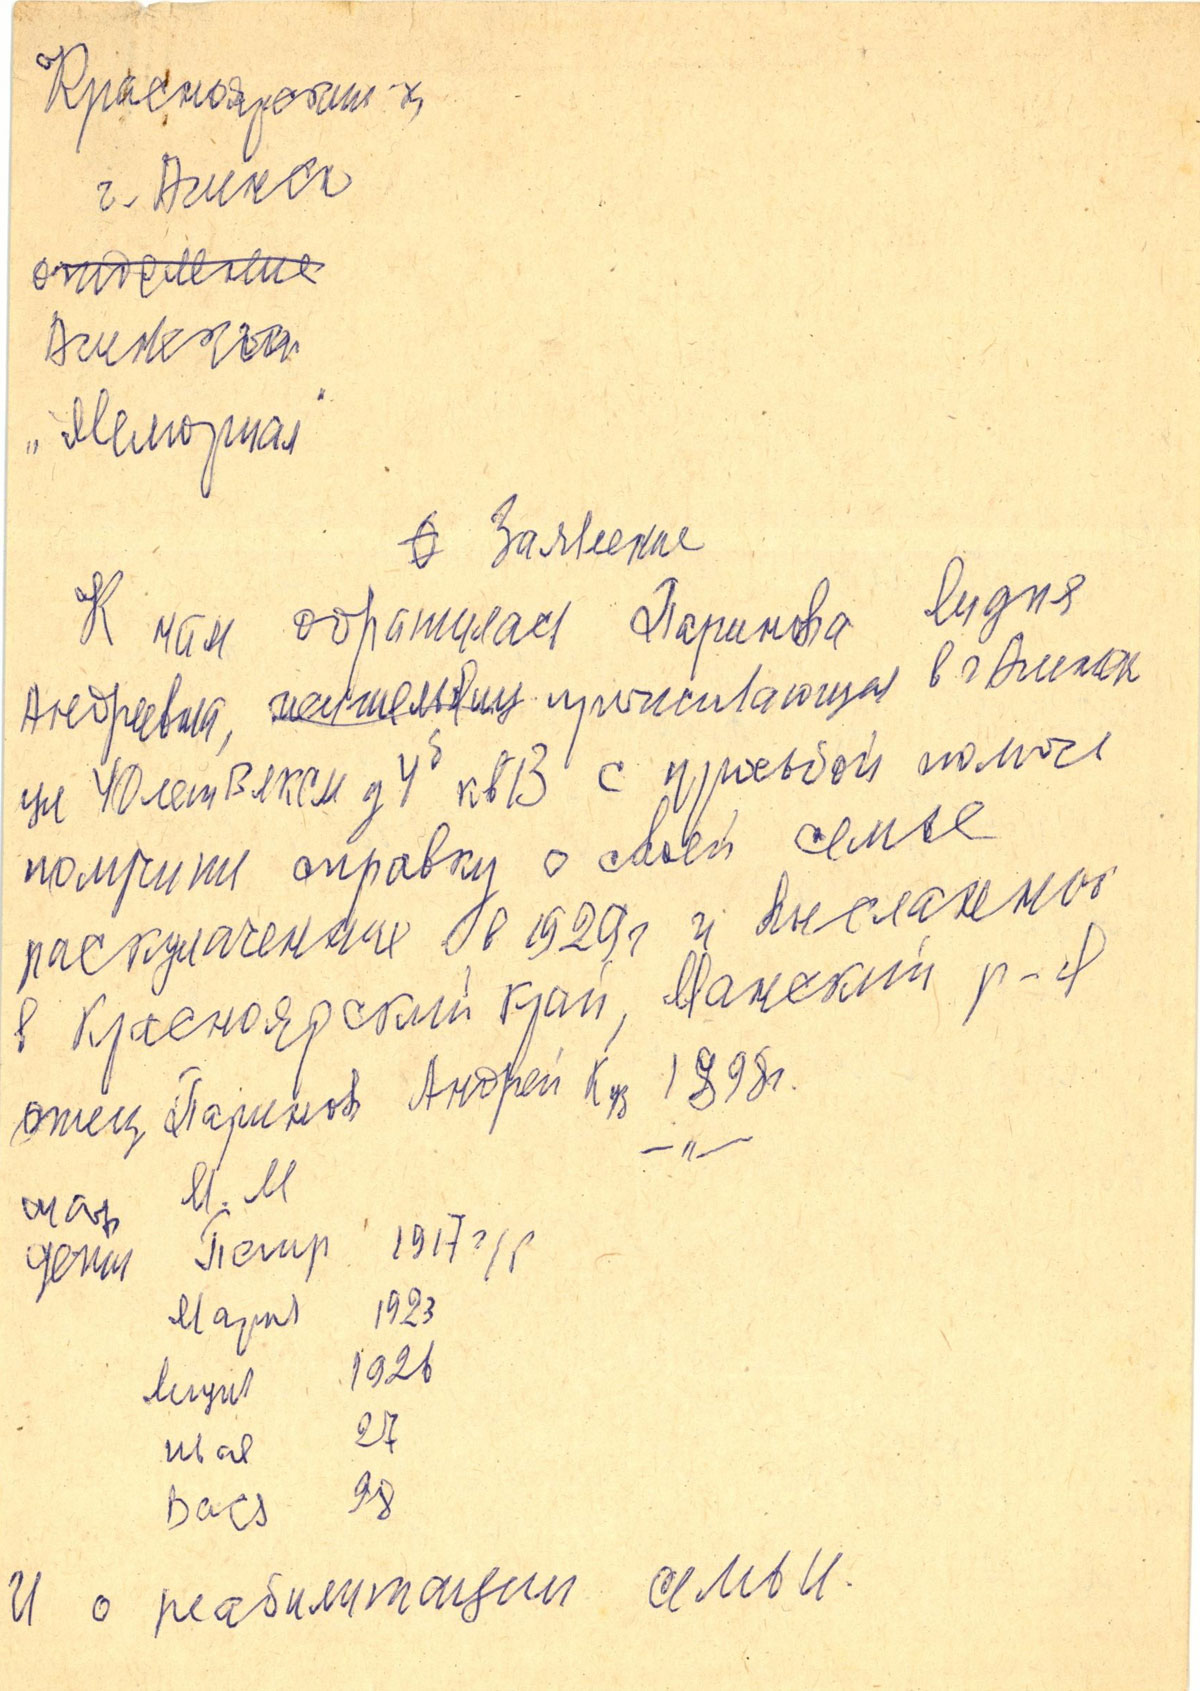 Красноярский к,
г. Ачинск
отделение
Ачинское
„Мемориал"
Заявление
К нам обратилась Паринова Лидия
Андреевна, проживающая в г Ачинск
ул 40 лет ВЛКСМ д 4б кв 13 с просьбой помочь
получить справку о своей семье
раскулаченные в 1929г и высланной
в Красноярский край, Манский р-н
отец Паринов Андрей Куз 1898г.
мать М. М —"—
дети Петр 1917 г/р
Мария 1923
Лидия 1926
Иван 27
Вася 98
И о реабилитации семьи.